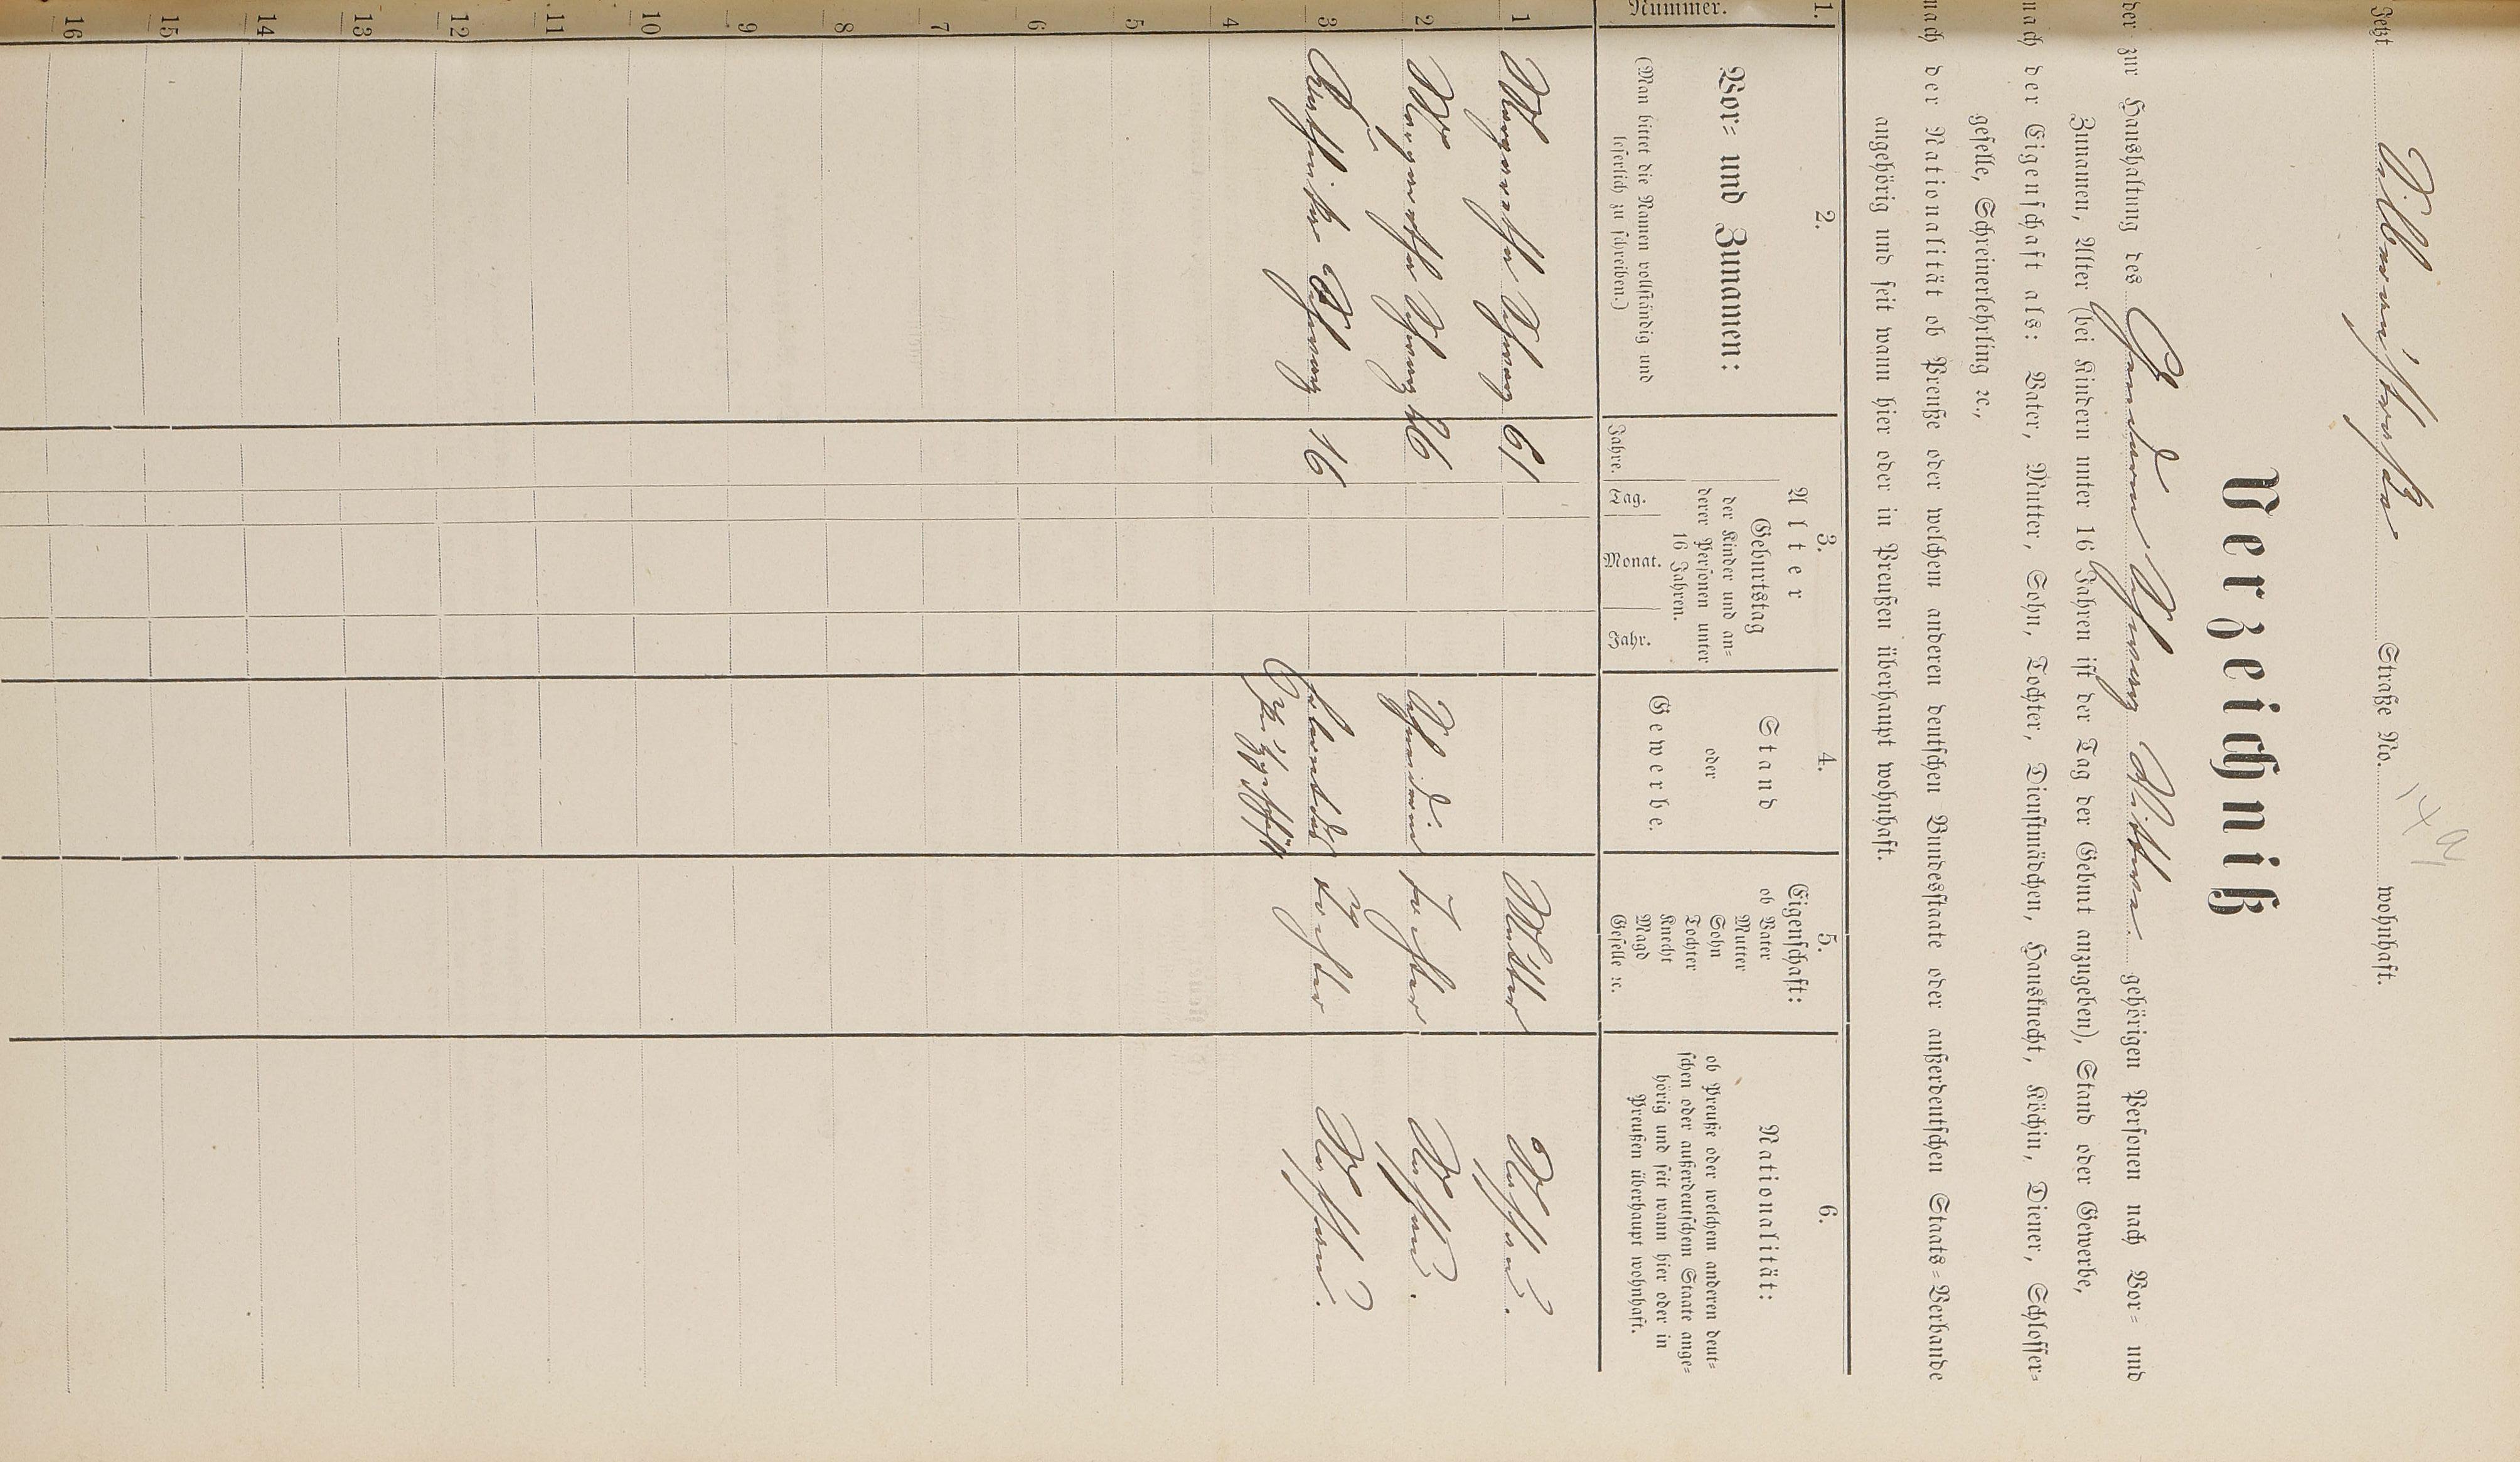 Jetzt Straße No. 14 a wohnhaft.
Verzeichniß
der zur Haushaltung des Schwarz Wittwe gehörigen Personen nach Vor- und
Zunamen, Alter (bei Kindern unter 16 Jahren ist der Tag der Geburt anzugeben), Stand oder Gewerbe,
nach der Eigenschaft als: Vater, Mutter, Sohn, Tochter, Dienstmädchen, Hausknecht, Köchin, Diener, Schlosser-
geselle, Schreinerlehrling ꝛc.,
nach der Nationalität ob Preuße oder welchem anderen deutschen Bundesstaate oder außerdeutschen Staats-Verbande
angehörig und seit wann hier oder in Preußen überhaupt wohnhaft.
1. 2. 3. 4. 5. 6.
Nummer.
Vor- und Zunamen:
(Man bittet die Namen vollständig und
leserlich zu schreiben.)
Alter
Geburtstag
der Kinder und an-
derer Personen unter
16 Jahren.
Jahre. Tag. Monat. Jahr.
Stand
oder
Gewerbe.
Eigenschaft:
ob Vater
Mutter
Sohn
Tochter
Knecht
Magd
Geselle ꝛc.
Nationalität:
ob Preuße oder welchem anderen deut-
schen oder außerdeutschem Staate ange-
hörig und seit wann hier oder in
Preußen überhaupt wohnhaft.
1 Margarethe Schwarz 61 Mutter
2 Margarethe Schwarz Tochter
3 Kathrika Schwarz 16 Tochter
4
5
6
7
8
9
10
11
12
13
14
15
16